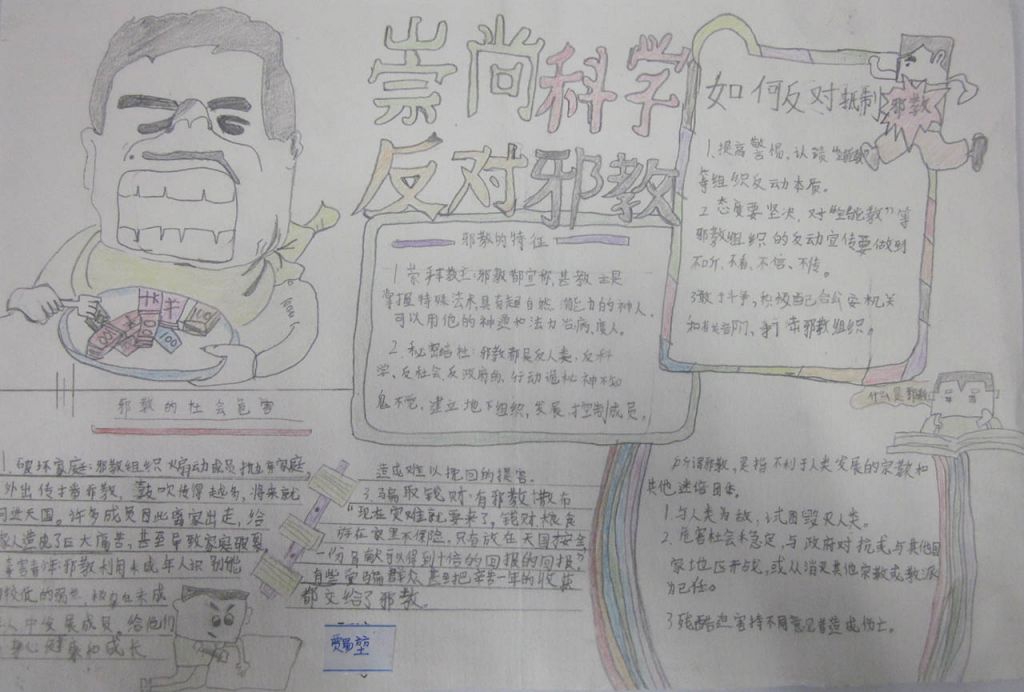 崇尚科学
反对邪教
邪教的特征
1. 崇拜教主:邪教都宣称其教主是
掌握特殊法术,具有超自然能力的神人,
可以用他的神通和法力治病、度人。
2. 秘密结社:邪教都是反人类、反科
学、反社会、反政府的,行动诡秘神不知
鬼不觉,建立地下组织,发展、控制成员。
如何反对抵制
邪教
1、提高警惕、认
等组织反动本质。
2 态度要坚决,对"全能教"等
邪教组织的反动宣传要做到
不听、不看、不信、不传。
3 敢于斗争,积极配合公安机关
和有关部门、打击邪教组织。
什么是邪教
所谓邪教,是指不利于人类发展的宗教和
其他迷信团体。
1. 与人类为敌,试图毁灭人类。
2. 危害社会稳定,与政府对抗或与其他国
家地区开战,或以消灭其他宗教或教派
为己任。
3 残酷迫害持不同意见者造成伤亡。
邪教的社会危害
1. 破坏家庭:邪教组织煽动成员抛弃家庭,
外出传播邪教,鼓吹传得越多,将来就
同进天国。许多成员因此离家出走,给
家人造成了巨大痛苦,甚至导致家庭破裂
毒害青少年:邪教利用未成年人识别能
较低的弱点
人中发展成员 给他们
身心健康和成长
造成难以挽回的损害.
3. 骗取钱财:有邪教散布
"现在灾难就要来了,钱财粮食
放在家里不保险,只有放在天国按全
一份贡献可以得到十倍的回报的回报",
有些受骗群众甚至把辛苦一年的收获
都交给了邪教。
100
100
100
100